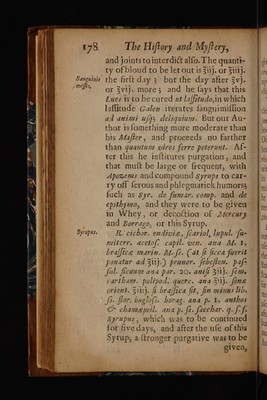 178 The History and Mystery,
and joints to interdict also. The quanti-
ty of bloud to be let out is ℥iij. or ℥iiij.
Sanguinis missio.
the first day; but the day after ℥vj.
or ℥vij. more; and he says that this
Lues is to be cured ut lassitudo, in which
lassitude Galen iterates sanguimission
ad animi usq; deliquium. But our Au-
thor is something more moderate than
his Master, and proceeds no farther
than quantum vires ferre poterunt. Af-
ter this he institutes purgation, and
that must be large or frequent, with
Apozems and compound Syrups to car-
ry off serous and phlegmatick humors;
such as Syr. de fumar. comp. and de
epithymo, and they were to be given
in Whey, or decoction of Mercury
and Borrago, or this Syrup.
Syrupus.
R. cichor. endiviæ, scariol, lupul. fu-
miterr. acetos. capil. ven. ana M. 1.
brassicæ marin. M. ss. (at si sicca fuerit
ponatur ad ℥iij.) prunor. sebesten. pas-
sul. ficuum ana par. 20. anisi ℥iij. sem.
cartham. polipod. querc. ana ℥ij. senæ
orient. ℥iiij. si brassica sit, sin minus lib.
ss. flor. bugloss. borag. ana p. 1. anthos
& chamæpit. ana p. ss. sacchar. q. s. f.
Syrupus, which was to be continued
for five days, and after the use of this
Syrup, a stronger purgative was to be
given,